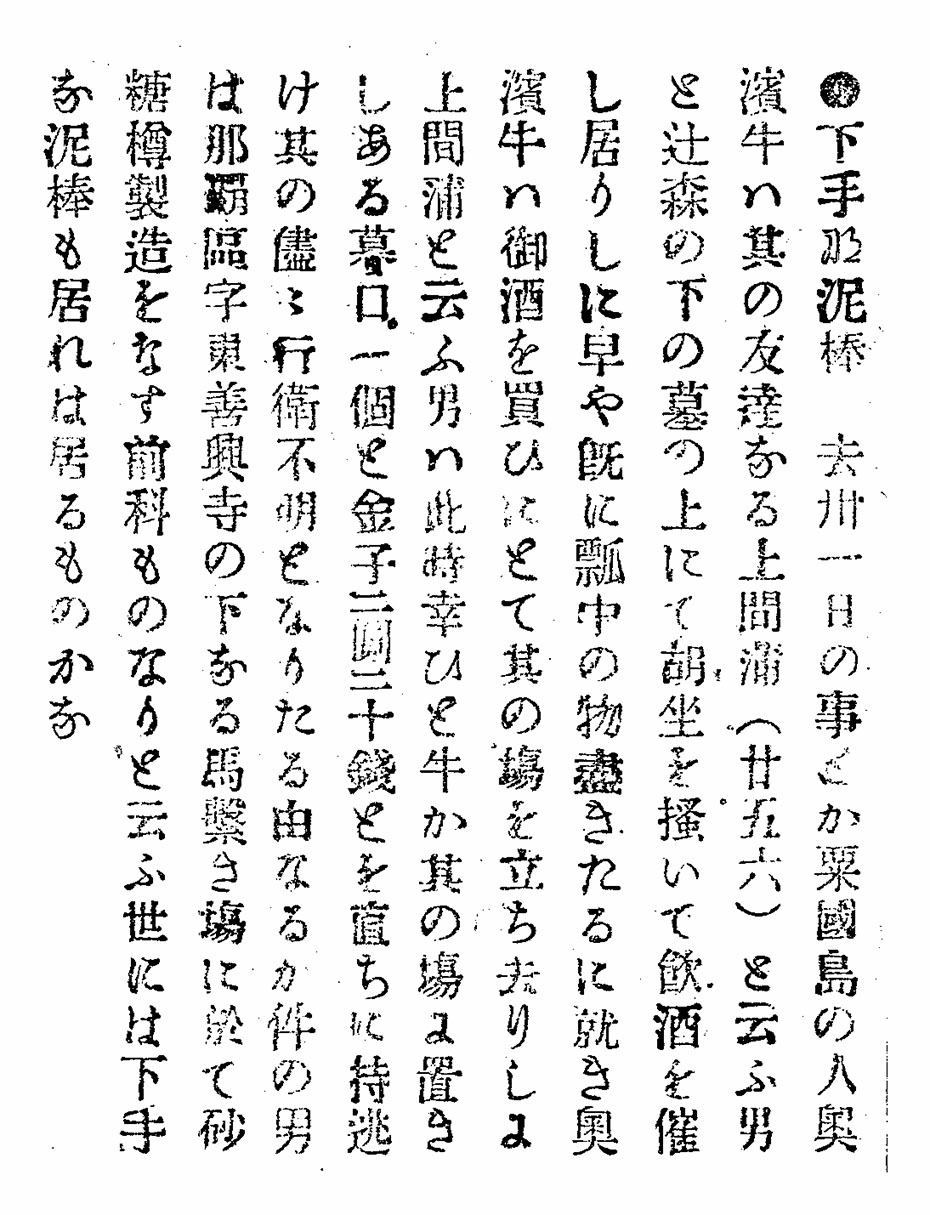 ●下手な泥棒　去卅一日の事とか粟國島の人奥
濱牛ハ其の友達なる上間蒲（廿五六）と云ふ男
と辻森の下の墓の上にて胡坐を掻いて飲酒を催
し居りしに早や既に瓢中の物盡きたるに就き奥
濱牛ハ御酒を買ひにとて其の塲を立ち去りしよ
上間蒲と云ふ男ハ此時幸ひと牛か其の塲よ置き
しある蟇口一個と金子二圓二十錢とを直ちに持逃
け其の儘ミ行衛不明となりたる由なるか件の男
は那覇區字東善興寺の下なる馬繋き塲に於て砂
糖樽製造をなす前科ものなりと云ふ世には下手
な泥棒も居れは居るものかな